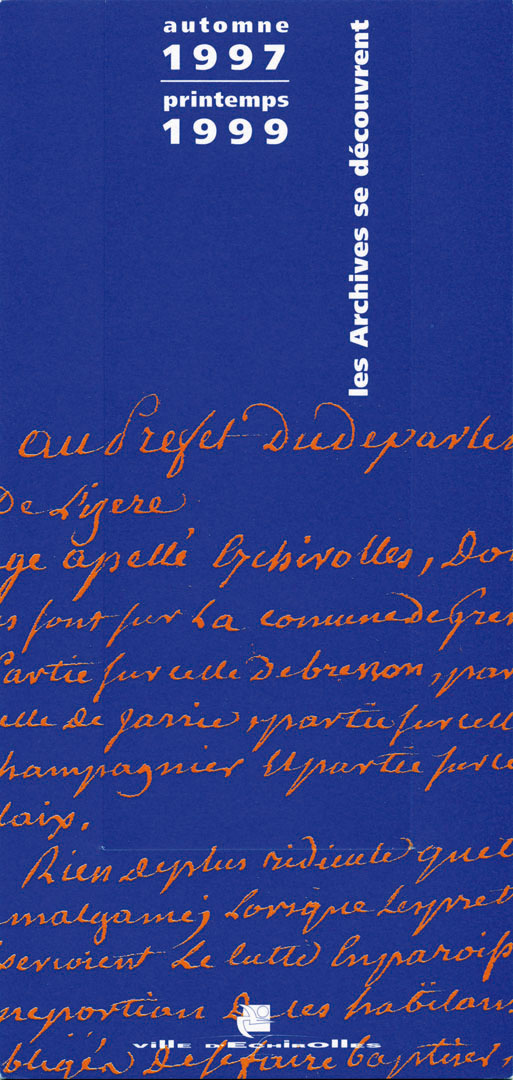 automne
1997
printemps
1999
les Archives se découvrent
au Prefet Du departe
De L'izere
ge apellé Echirolles, Do
s sont sur La comune de Gre
Partie sur celle De bresson, par
elle De jarrie, partie sur cell
hampagnier Et partie sur ce
laix.
Rien De plus ridicule quel
malgame, Lorsque Les pret
servoient Le Culte En paroiss
me portion De Les habitan
VILLE D'ECHIROLLES
bligés De se faire baptiser,